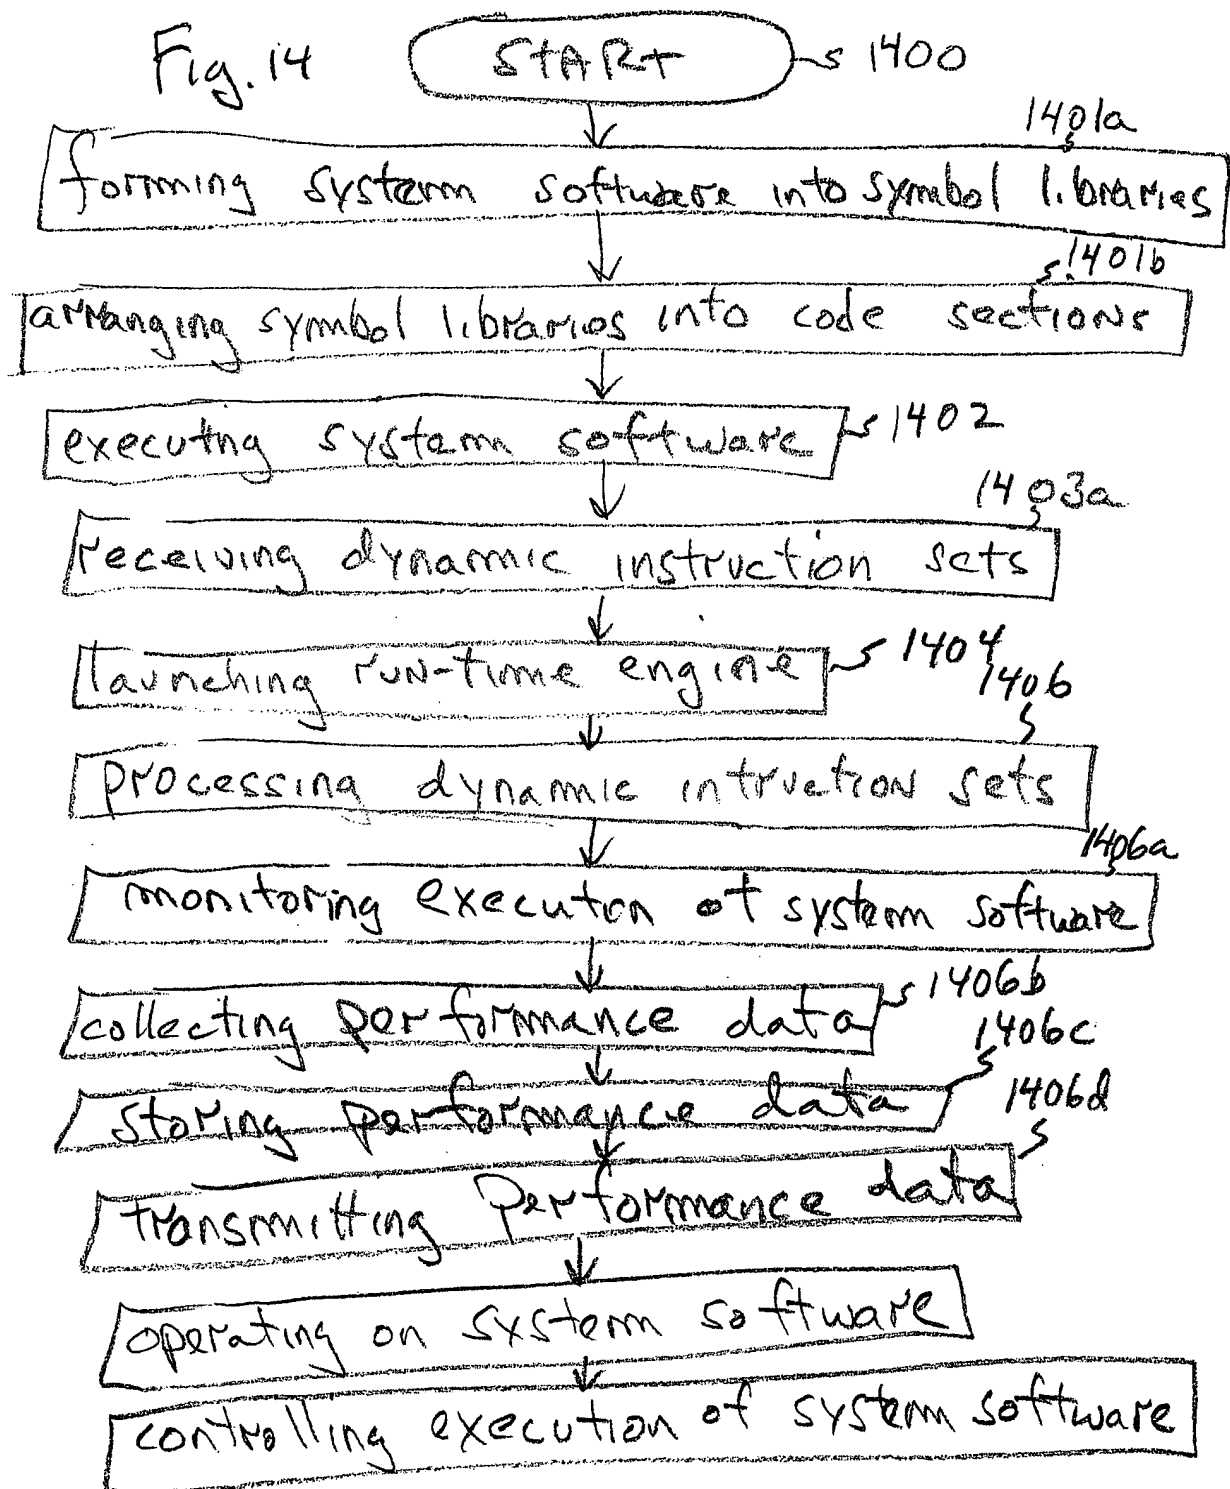 Fig. 14 START 1400
1401a
forming system software into symbol libraries
1401b
arranging symbol libraries into code sections
executng system software 1402
1403a
receiving dynamic instruction sets
launching run-time engine 1404
1406
processing dynamic intruction sets
1406a
monitoring execution of system software
1406b
collecting performance data
1406c
storing performance data
1406d
transmitting performance data
operating on system software
controlling execution of system software